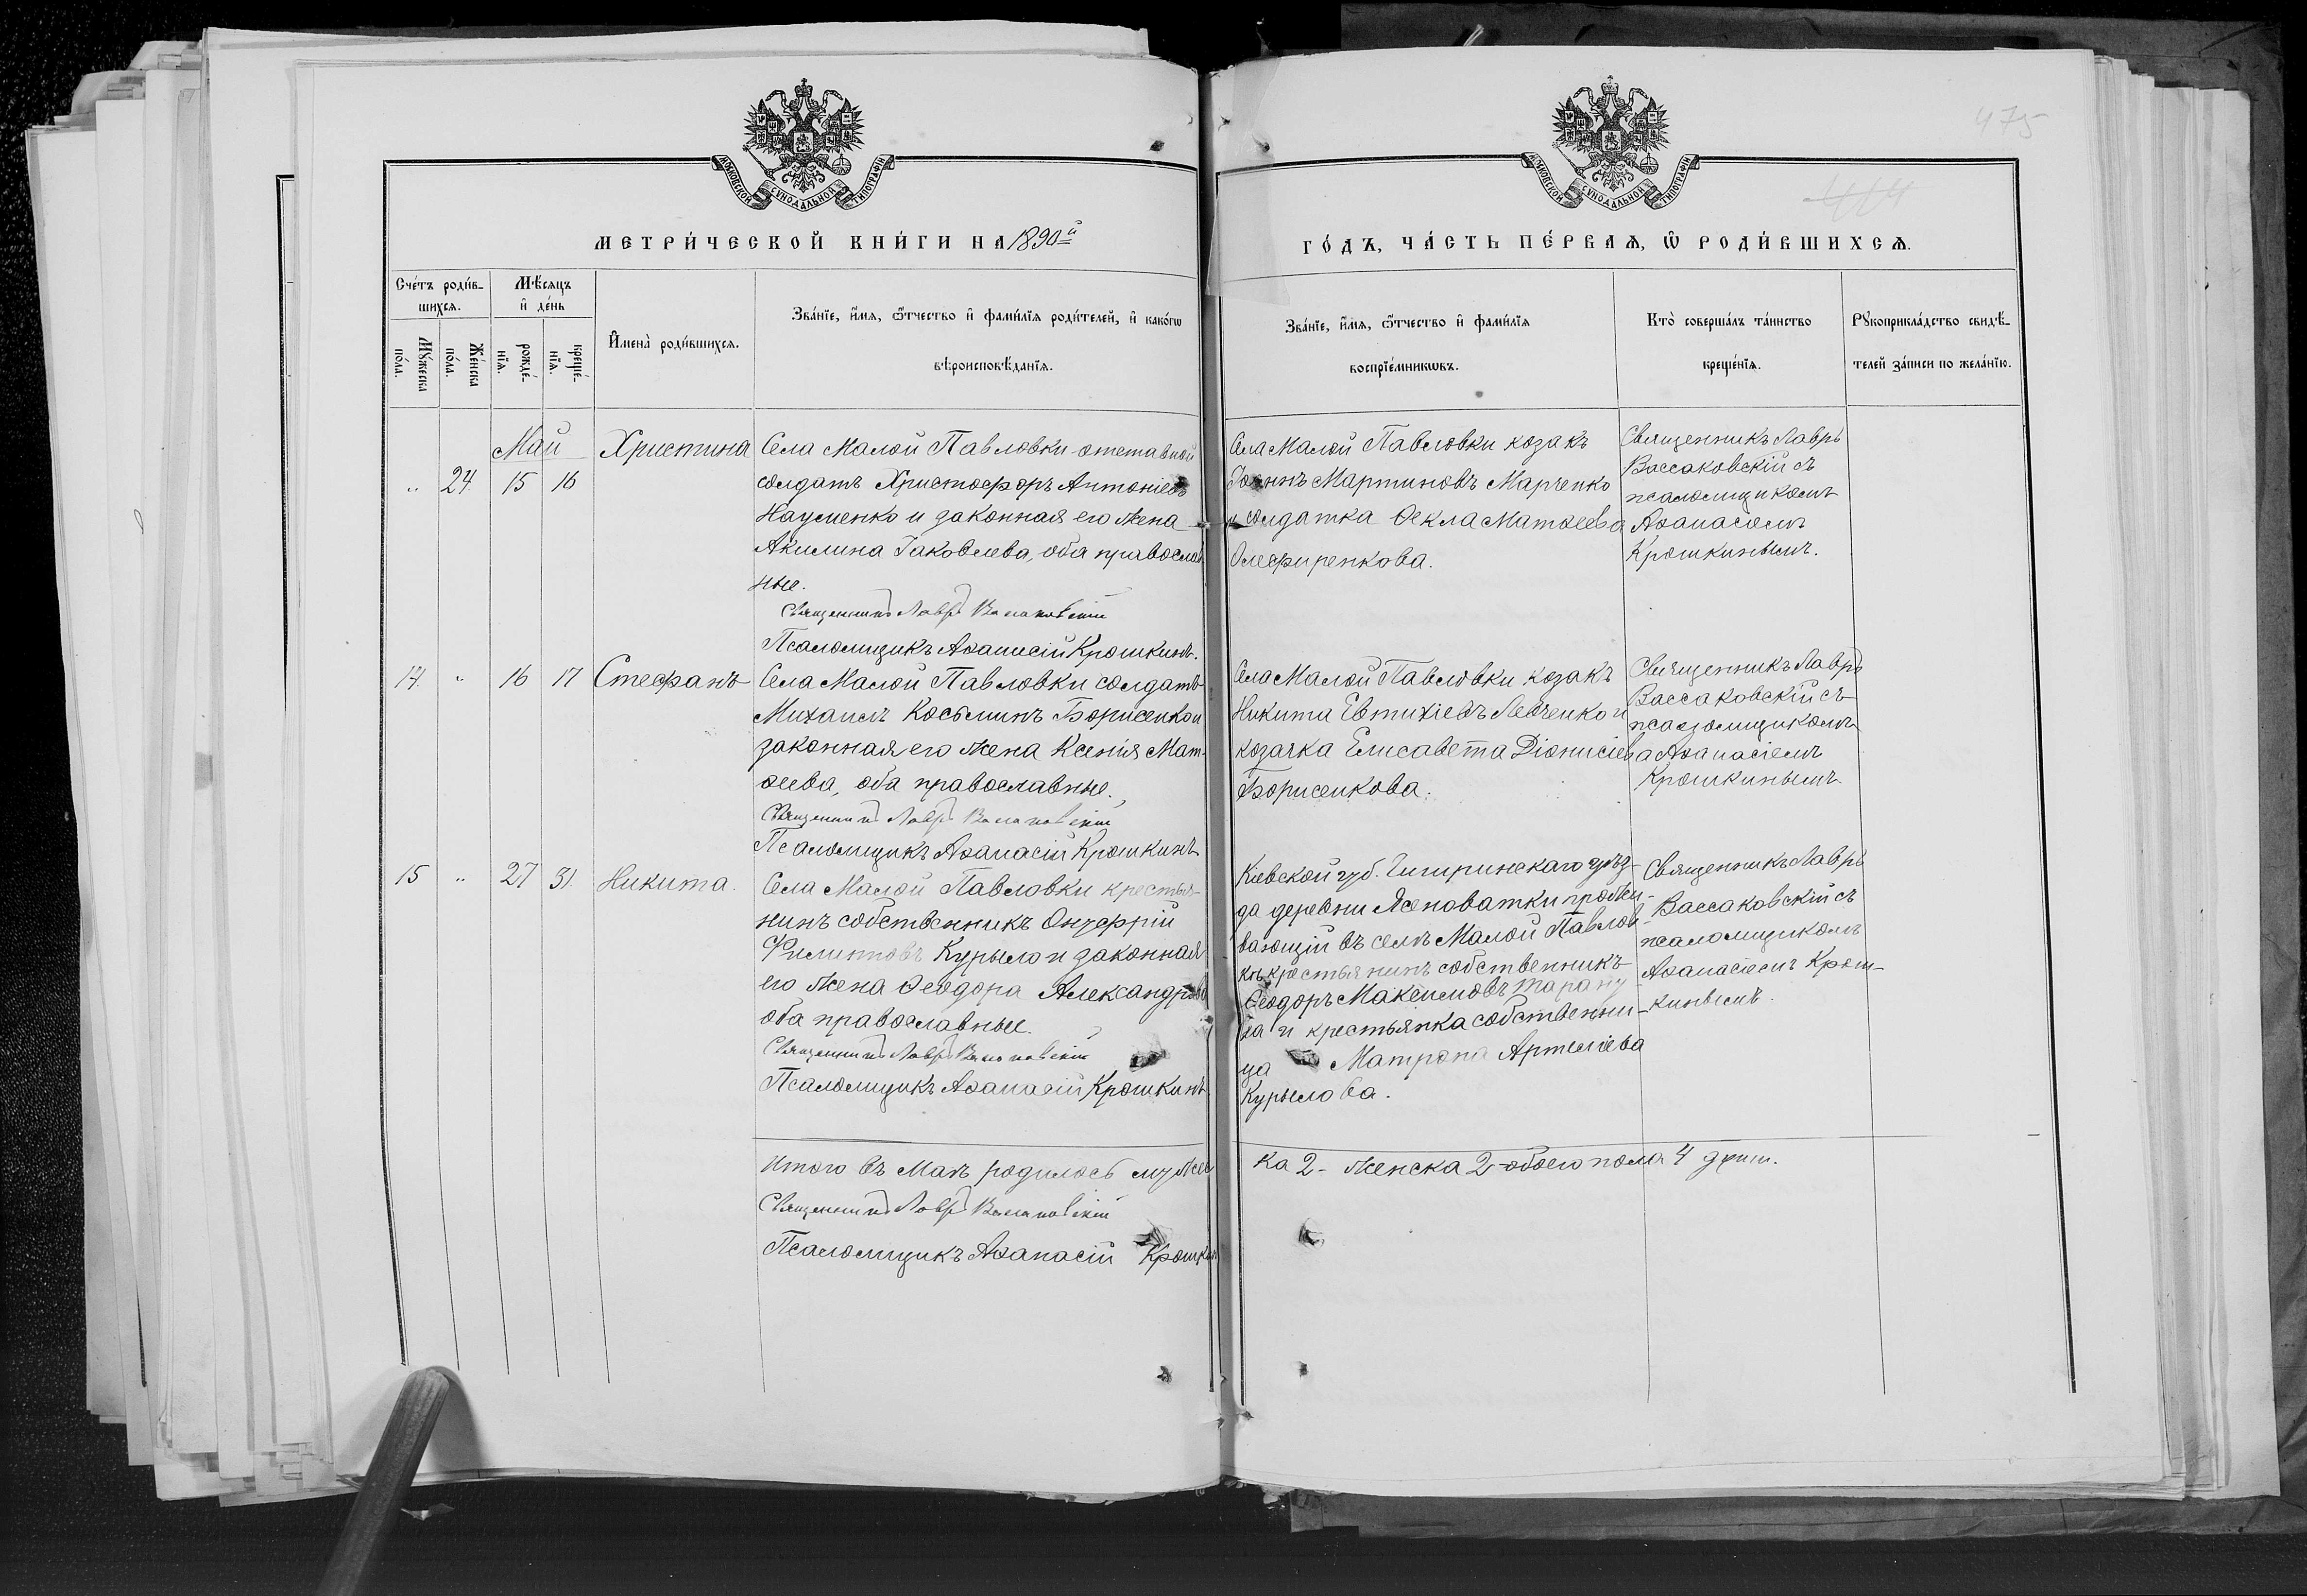 475
414
МОСКОВСКОЙ СѴНОДАЛЬНОЙ ТИПОГРАФІИ
МОСКОВСКОЙ СѴНОДАЛЬНОЙ ТИПОГРАФІИ
МЕТРИ́ЧЕСКОЙ КНИ́ГИ НА 1890й
ГО́ДЪ, ЧА́СТЬ ПЕ́РВАѦ, Ѿ РОДИ́ВШИХСѦ.
Сче́тъ роди́в-
шихсѧ.
Мꙋ́жеска по́ла.
Же́нска по́ла.
Мѣ́сѧцъ
и҆ де́нь
рожде́-нїѧ.
креще́-нїѧ.
И҆мена̀ роди́вшихсѧ.
Зва́нїе, и҆́мѧ, ѻ҆́тчество и҆ фами́лїѧ роди́телей, и҆ како́гѡ
вѣроисповѣ́данїѧ.
Зва́нїе, и҆́мѧ, ѻ҆́тчество и҆ фами́лїѧ
воспрїе́мникѡвъ.
Кто̀ соверша́лъ та́инство
креще́нїѧ.
Рꙋкоприкла́дство свидѣ́-
телей за́писи по жела́нїю.
Май
„ 24 15 16
Христина
Села Малой Павловки отставной
солдатъ Христофоръ Антоніевъ
Науменко и законная его жена
Акилина Іаковлева, оба православ
ные.
Священникъ Лавръ Вассаковскій
Псаломщикъ Аѳанасій Крошкинъ.
Села Малой Павловки козакъ
Іоаннъ Мартиновъ Марченко
и солдатка Ѳекла Матѳеева
Олефиренкова.
Священникъ Лавръ
Вассаковскій съ
псаломщикомъ
Аѳанасіемъ
Крошкинымъ.
14. „ 16 17 Стефанъ
Села Малой Павловки солдатъ
Михаилъ Косьминъ Борисенко и
законная его жена Ксенія Мат-
ѳеева, оба православные.
Священникъ Лавръ Вассаковскій
Псаломщикъ Аѳанасій Крошкинъ
Села Малой Павловки козакъ
Никита Евтихіевъ Левченко и
козачка Елисавета Діонисіева
Борисенкова.
Священникъ Лавръ
Вассаковскій съ
псаломщикомъ
Аѳанасіемъ
Крошкинымъ
15 „ 27 31. Никита.
Села Малой Павловки крестья-
нинъ собственникъ Онуфрій
Филипповъ Курыло и законная
его жена Ѳеодора Александрова
оба православные.
Священникъ Лавръ Вассаковскій
Псаломщикъ Аѳанасій Крошкинъ
Кіевской губ. Чигиринскаго уѣз-
да деревни Ясеноватки прожи-
вающій въ селѣ Малой Павлов-
кѣ крестьянинъ собственникъ
Ѳеодоръ Максимовъ Таран
ха и крестьянка собственни-
ца Матрона Артеміева
Курылова.
Священникъ Лавръ
Вассаковскій съ
псаломщикомъ
Аѳанасіемъ Крош-
кинымъ.
Итого въ Маѣ родилось мужес
ка 2 - женска 2 обоего пола 4 душ.
Священникъ Лавръ Вассаковскій
Псаломщикъ Аѳанасій Крошкин